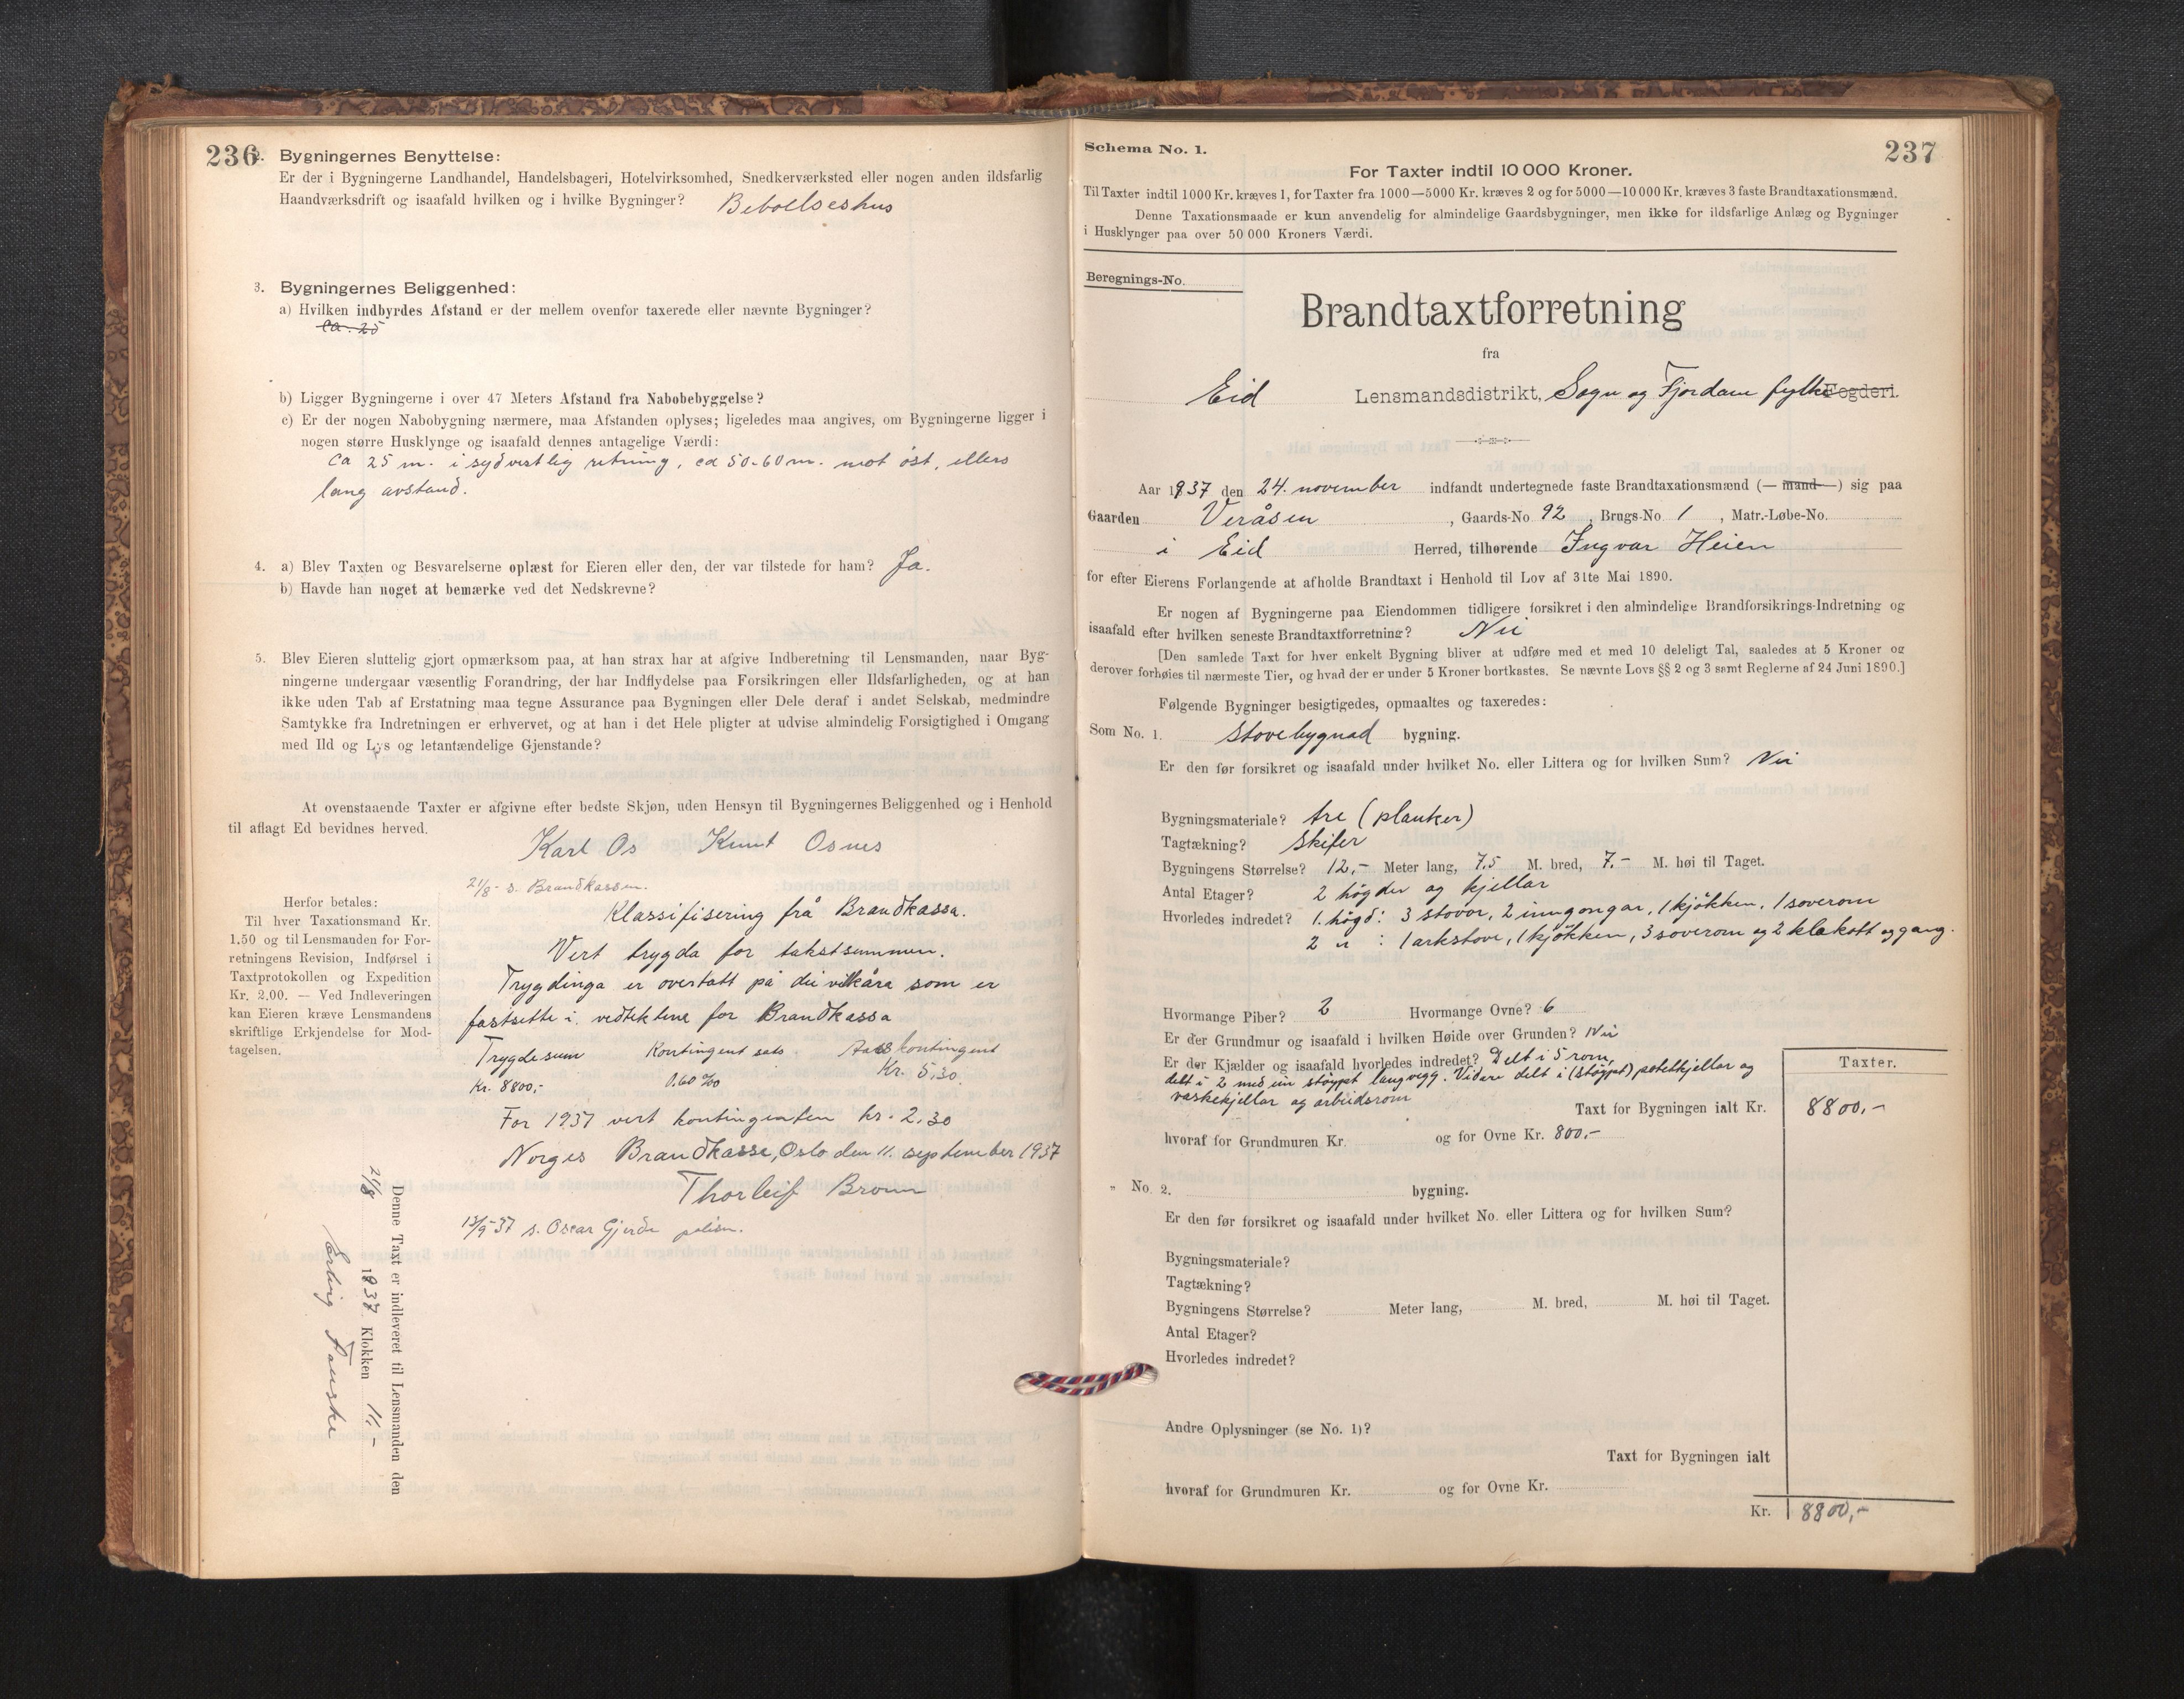 236
2. Bygningernes Benyttelse:
Er der i Bygningerne Landhandel, Handelsbageri, Hotelvirksomhed, Snedkerværksted eller nogen anden ildsfarlig
Haandværksdrift og isaafald hvilken og i hvilke Bygninger? Beboelseshus
3. Bygningernes Beliggenhed:
a) Hvilken indbyrdes Afstand er der mellem ovenfor taxerede eller nævnte Bygninger?
ca. 25
b) Ligger Bygningerne i over 47 Meters Afstand fra Nabobebyggelse?
c) Er der nogen Nabobygning nærmere, maa Afstanden oplyses; ligeledes maa angives, om Bygningerne ligger i
nogen større Husklynge og isaafald dennes antagelige Værdi:
ca 25 m. i sydvestlig retning, ca 50-60 m. mot öst, ellers
lang avstand.
4. a) Blev Taxten og Besvarelserne oplæst for Eieren eller den, der var tilstede for ham? Ja.
b) Havde han noget at bemærke ved det Nedskrevne?
5. Blev Eieren sluttelig gjort opmærksom paa, at han strax har at afgive Indberetning til Lensmanden, naar Byg-
ningerne undergaar væsentlig Forandring, der har Indflydelse paa Forsikringen eller Ildsfarligheden, og at han
ikke uden Tab af Erstatning maa tegne Assurance paa Bygningen eller Dele deraf i andet Selskab, medmindre
Samtykke fra Indretningen er erhvervet, og at han i det Hele pligter at udvise almindelig Forsigtighed i Omgang
med Ild og Lys og letantændelige Gjenstande?
At ovenstaaende Taxter er afgivne efter bedste Skjøn, uden Hensyn til Bygningernes Beliggenhed og i Henhold
til aflagt Ed bevidnes herved.
Karl Os Knut Osnes
21/8 s. Brandkassen.
Klassifisering frå Brandkassa.
Vert trygda for takstsummen.
Trygdinga er overtatt på dei vilkåra som er
fastsette i vedtektene for Brandkassa
Trygdesum Kontingentsats Årskontingent
Kr. 8800,- 0.60 ‰ Kr. 5,30.
For 1937 vert kontingenten kr. 2,30
Norges Brandkasse, Oslo den 11. september 1937
Thorleif Bronn
13/9-37 s. Oscar Gjerde polisen.
Herfor betales:
Til hver Taxationsmand Kr.
1.50 og til Lensmanden for For-
retningens Revision, Indførsel i
Taxtprotokollen og Expedition
Kr. 2.00. — Ved Indleveringen
kan Eieren kræve Lensmandens
skriftlige Erkjendelse for Mod-
tagelsen.
Denne Taxt er indleveret til Lensmanden den
21/8 1937 Klokken 11.-
Fauske
237
Schema No. 1.
For Taxter indtil 10 000 Kroner.
Til Taxter indtil 1000 Kr. kræves 1, for Taxter fra 1000—5000 Kr. kræves 2 og for 5000—10 000 Kr. kræves 3 faste Brandtaxationsmænd.
Denne Taxationsmaade er kun anvendelig for almindelige Gaardsbygninger, men ikke for ildsfarlige Anlæg og Bygninger
i Husklynger paa over 50 000 Kroners Værdi.
Beregnings-No.
Brandtaxtforretning
fra
Eid Lensmandsdistrikt, Sogn og Fjordane fylke Fogderi.
Aar 1937 den 24. november indfandt undertegnede faste Brandtaxationsmænd (— mand —) sig paa
Gaarden Veråsen, Gaards-No 92, Brugs-No 1, Matr.-Løbe-No.
i Eid Herred, tilhørende Ingvar Heien
for efter Eierens Forlangende at afholde Brandtaxt i Henhold til Lov af 31te Mai 1890.
Er nogen af Bygningerne paa Eiendommen tidligere forsikret i den almindelige Brandforsikrings-Indretning og
isaafald efter hvilken seneste Brandtaxtforretning? Nei
[Den samlede Taxt for hver enkelt Bygning bliver at udføre med et med 10 deleligt Tal, saaledes at 5 Kroner og
derover forhøies til nærmeste Tier, og hvad der er under 5 Kroner bortkastes. Se nævnte Lovs §§ 2 og 3 samt Reglerne af 24 Juni 1890.]
Følgende Bygninger besigtigedes, opmaaltes og taxeredes:
Som No. 1. stovebygnad bygning.
Er den før forsikret og isaafald under hvilket No. eller Littera og for hvilken Sum? Nei
Bygningsmateriale? tre (planker)
Tagtækning? skifer
Bygningens Størrelse? 12,- Meter lang, 7.5 M. bred, 7.- M. høi til Taget.
Antal Etager? 2 högder og kjellar
Hvorledes indredet? 1. högd: 3 stovor, 2 inngongar, 1 kjökken, 1 soverom
2 " : 1 arkstove, 1 kjökken, 3 soverom og 2 klekott og gang.
Hvormange Piber? 2 Hvormange Ovne? 6
Er der Grundmur og isaafald i hvilken Høide over Grunden? Nei
Er der Kjælder og isaafald hvorledes indredet? Delt i 5 rom,
delt i 2 med ein stöypt langvegg. Vidare delt i (stöypt) potetkjellar og
vaskekjellar og arbeidsrom
Taxter.
Taxt for Bygningen ialt Kr. 8800,-
hvoraf for Grundmuren Kr. og for Ovne Kr. 800,-
„ No. 2. bygning.
Er den før forsikret og isaafald under hvilket No. eller Littera og for hvilken Sum?
Bygningsmateriale?
Tagtækning?
Bygningens Størrelse? Meter lang, M. bred, M. høi til Taget.
Antal Etager?
Hvorledes indredet?
Andre Oplysninger (se No. 1)?
Taxt for Bygningen ialt
hvoraf for Grundmuren Kr. og for Ovne Kr.
Kr. 8800,-